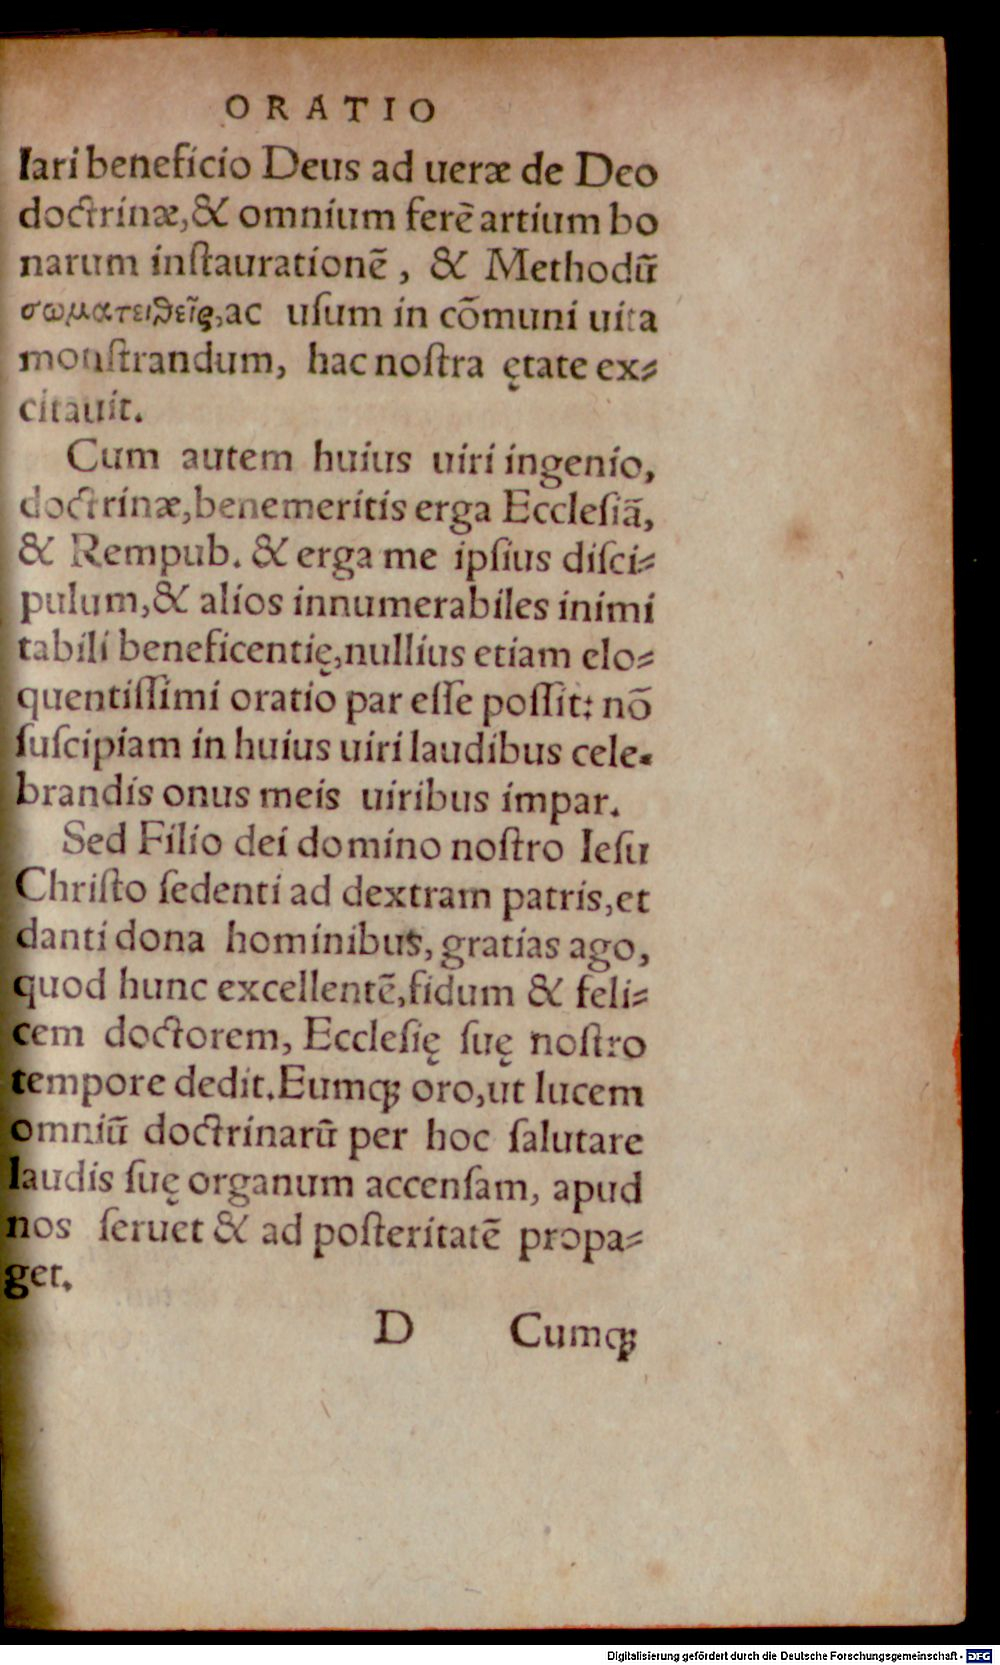 ORATIO
lari beneficio Deus ad ueræ de Deo
doctrinæ,& omnium ferē artium bo
narum inſtaurationē , & Methodū
σωματειθεῖς,ac uſum in cōmuni uita
monſtrandum, hac noſtra ętate ex⸗
citauit.
Cum autem huius uiri ingenio,
doctrinæ,benemeritis erga Eccleſiā,
& Rempub. & erga me ipſius diſci⸗
pulum,& alios innumerabiles inimi
tabili beneficentię,nullius etiam elo⸗
quentiſſimi oratio par eſſe poſſit: nō
ſuſcipiam in huius uiri laudibus cele⸗
brandis onus meis uiribus impar.
Sed Filio dei domino noſtro Ieſu
Chriſto ſedenti ad dextram patris,et
danti dona hominibus, gratias ago,
quod hunc excellentē,fidum & feli⸗
cem doctorem, Eccleſię ſuę noſtro
tempore dedit.Eumq́ꝫ oro,ut lucem
omniū doctrinarū per hoc ſalutare
laudis ſuę organum accenſam, apud
nos ſeruet & ad poſteritatē propa⸗
get.
D Cumqꝫ
Digitalisierung gefördert durch die Deutsche Forschungsgemeinschaft - DFG